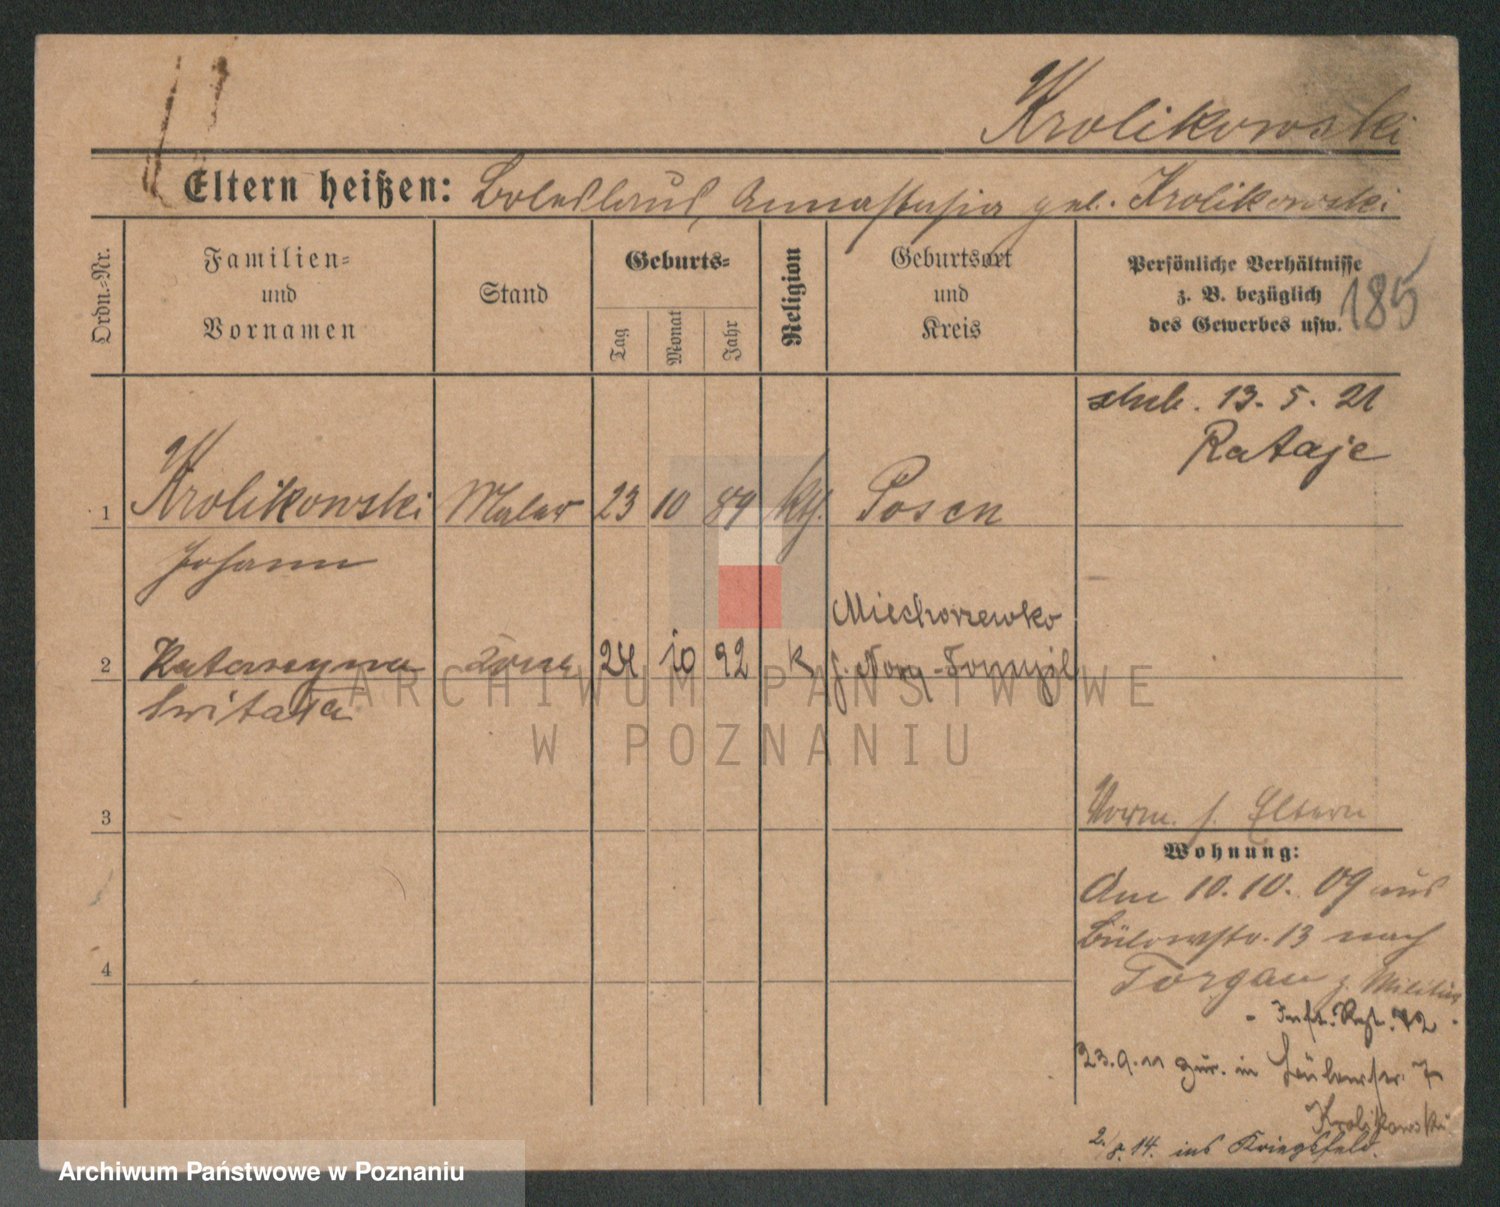 Krolikowski
Eltern heißen: Boleslaus, Annastasia geb. Krolikowski
Ordn.-Nr.
Familien-
und
Vornamen
Stand
Geburts-
Tag
Monat
Jahr
Religion
Geburtsort
und
Kreis
Persönliche Verhältnisse
z. B. bezüglich
des Gewerbes usw.
185
13. 5. 21
Rataje
1 Krolikowski Maler 23 10 89 kth. Posen
Johann
2 Katarzyna 24 10 92 k
3
4
s. Eltern
Wohnung:
Am 10. 10. 09 aus
Bülowstr. 13 nach
Torgau z. Militär
- Inft. Regt. 72
23. 9. 11 zur. in
Krolikowski
2./8. 14. ins Kriegsfeld.
ARCHIWUM PAŃSTWOWE
W POZNANIU
Archiwum Państwowe w Poznaniu